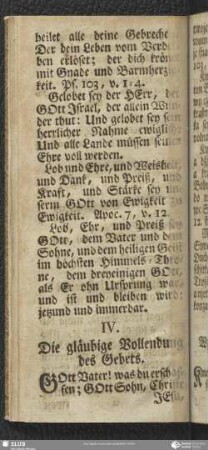 heilet alle deine Gebreche
Der dein Leben vom Verd
ben erlöset; der dich krön
mit Gnade und Barmherz
keit. Ps. 103, v. 1-4.
Gelobet sey der HErr, der
GOtt Jsrael, der allein Wun
der thut: Und gelobet sey sein
herrlicher Nahme ewiglich
Und alle Lande müssen seiner
Ehre voll werden.
Lob und Ehre, und Weisheit,
und Dank, und Preiß, und
Kraft, und Stärke sey un
serm GOtt von Ewigkeit zu
Ewigkeit. Apoc. 7, v. 12.
Lob, Ehr, und Preiß sey
GOtt, dem Vater und dem
Sohne, und dem heiligen Geist
im höchsten Himmels Thro
ne, dem dreyeinigen GOtt,
als Er ohn Ursprung war
und ist und bleiben wird
jetzund und immerdar.
IV.
Die gläubige Vollendung
des Gebets.
GOtt Vater! was du erschaf
fen; GOtt Sohn, Christe
JEsu,
SLUB